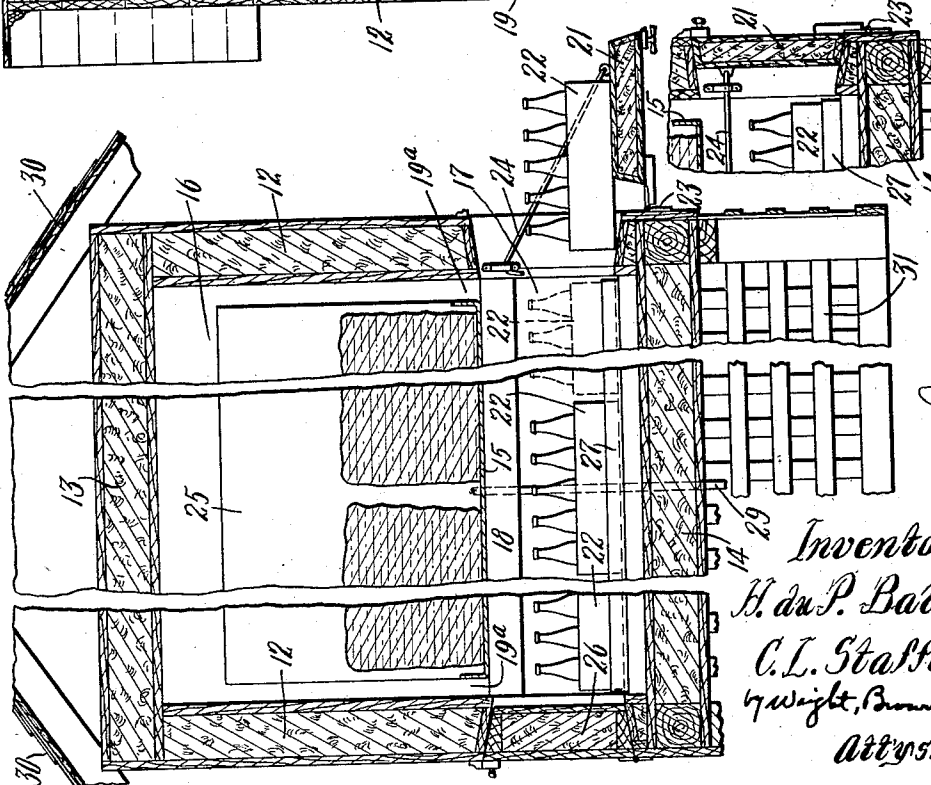 12
19
21
23
22
21
15
24
22
27
14
30
16
12
19ª
17
24
23
13
25
22
22
15
18
27
22
31
29
14
12
19ª
26
30
Invento
H. du P.
C. L. Staff
by Wright, Brow
Attys.